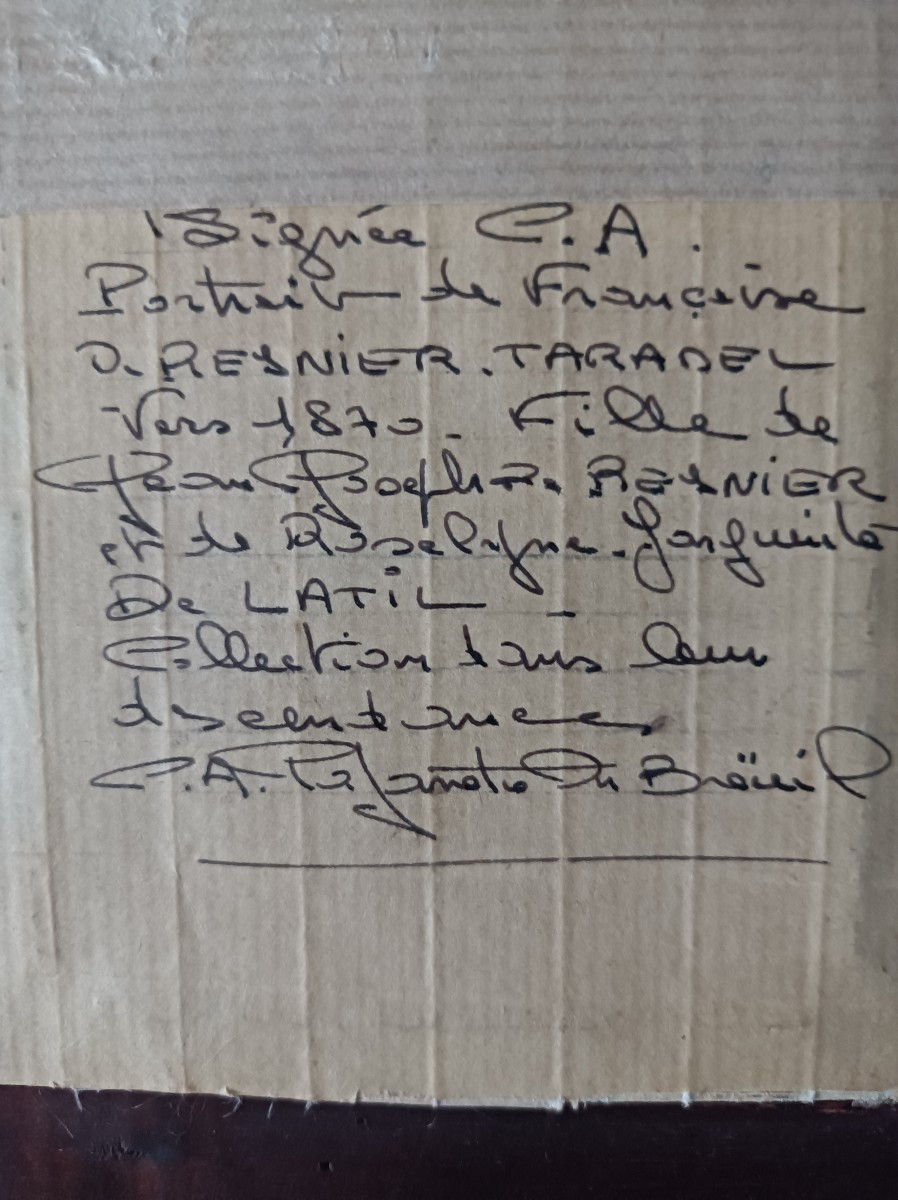 Signée C.A.
Portrait de Françoise
D. RESNIER.TARADEL
Vers 1870. Fille de
Jean Joseph R. RESNIER
et de Roselyne.
De LATIL -
Collection dans leur
descendance.
C.A. Du Breüil